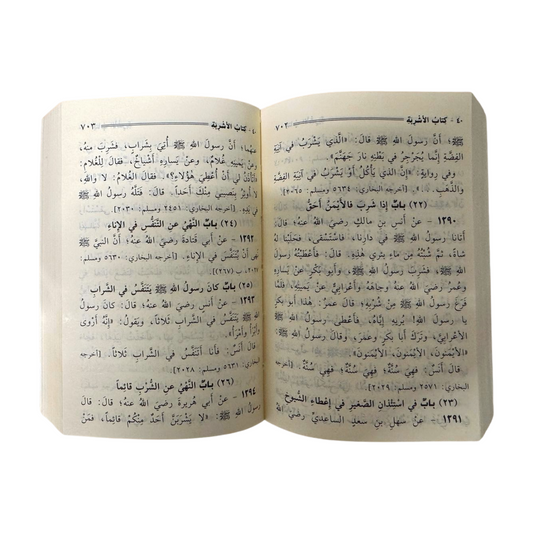 ٤٠ - كتابُ الأشربة ٧٠٢
ﷺ؛ أَنَّ رَسولَ اللهِ ﷺ قالَ: «الَّذي يَشْرَبُ في آنِيَةِ
الفِضَّةِ إِنَّما يُجَرْجِرُ في بَطْنِهِ نارَ جَهَنَّمَ».
وفي رِوايةٍ: «إِنَّ الذي يَأْكُلُ أوْ يَشْرَبُ في آنِيَةِ الفِضَّةِ
والذَّهَبِ». [أخرجه البخاري: ٥٦٣٤ ومسلم: ٢٠٦٥].
(٢٢) بابٌ إذا شرِبَ فالأيْمَنُ أحَقُّ
١٣٩٠ - عَنْ أنَسِ بنِ مالكٍ رضيَ اللهُ عنهُ؛ قالَ:
أتانا رَسولُ اللهِ ﷺ في دارِنا، فاسْتَسْقى، فحَلَبْنا لهُ
شاةً، ثُمَّ شُبْتُهُ مِن ماءِ بِئري هٰذِهِ. قالَ: فأعْطَيْتُ رَسولَ
اللهِ ﷺ، فشَرِبَ رَسولُ اللهِ ﷺ، وأبو بَكْرٍ عنْ يَسارِهِ
وعُمَرُ وِجاهَهُ، وأعْرابِيٌّ عنْ يَمينِهِ، فلمَّا
فَرَغَ رَسولُ اللهِ ﷺ مِنْ شُرْبِهِ؛ قالَ عُمَرُ: هٰذا أبو بَكرٍ
يا رَسولَ اللهِ! يُريهِ إيَّاهُ، فأعْطى رَسولُ اللهِ ﷺ
الأعْرابِيَّ، وتَرَكَ أبا بَكرٍ وعُمَرَ، وقالَ رَسولُ اللهِ ﷺ:
«الأيْمَنُونَ، الأيْمَنُونَ، الأيْمَنُونَ».
قالَ أنَسٌ: فهِيَ سُنَّةٌ، فهِيَ سُنَّةٌ، فهِيَ سُنَّةٌ. [أخرجه
البخاري: ٢٥٧١ ومسلم: ٢٠٢٩].
(٢٣) بابٌ في اسْتِئْذانِ الصَّغيرِ في إعْطاءِ الشُّيوخِ
١٣٩١ - عَنْ سَهْلِ بنِ سَعْدٍ السَّاعِديِّ رضيَ اللهُ
٤٠ - كتابُ الأشربة ٧٠٣
عنهُما؛ أنَّ رَسولَ اللهِ ﷺ أُتِيَ بِشَرابٍ، فشَرِبَ منهُ،
وعنْ يَمينِهِ غُلامٌ، وعنْ يَسارِهِ أشْياخٌ، فقالَ للغُلامِ:
«أتَأْذَنُ لي أنْ أُعْطِيَ هٰؤلاءِ؟». فقالَ الغُلامُ: لا واللهِ،
لا أُوثِرُ بنَصيبي مِنْكَ أحَداً. قالَ: فتَلَّهُ رَسولُ اللهِ ﷺ
في يَدِهِ. [أخرجه البخاري: ٢٤٥١ ومسلم: ٢٠٣٠].
(٢٤) بابُ النَّهْيِ عنِ التَّنَفُّسِ في الإناءِ
١٣٩٢ - عَنْ أبي قَتادةَ رضيَ اللهُ عنهُ؛ أنَّ النبيَّ ﷺ
نَهى أنْ يُتَنَفَّسَ في الإناءِ. [أخرجه البخاري: ٥٦٣٠ ومسلم:
(٢٦٧)].
(٢٥) بابٌ كانَ رَسولُ اللهِ ﷺ يَتَنَفَّسُ في الشَّرابِ
١٣٩٣ - عَنْ أنَسٍ رضيَ اللهُ عنهُ؛ قالَ: كانَ
رَسولُ اللهِ ﷺ يَتَنَفَّسُ في الشَّرابِ ثَلاثاً، ويَقولُ: «إنَّهُ أرْوى
وأبْرَأُ وأمْرَأُ».
قالَ أنَسٌ: فأنا أتَنَفَّسُ في الشَّرابِ ثَلاثاً. [أخرجه
البخاري: ٥٦٣١ ومسلم: ٢٠٢٨].
(٢٦) بابُ النَّهْيِ عنِ الشُّرْبِ قائِماً
١٣٩٤ - عَنْ أبي هُريرةَ رضيَ اللهُ عنهُ؛ قالَ: قالَ
رَسولُ اللهِ ﷺ: «لا يَشْرَبَنَّ أحَدٌ مِنْكُم قائِماً، فمَنْ